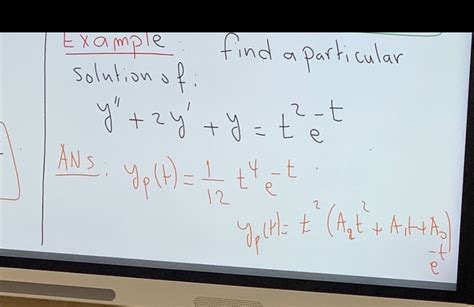 Example: find a particular
solution of:
y'' + 2y' + y = t² e^-t
ANS: y_p(t) = 1/12 t⁴ e^-t.
y_p(t) = t² (A₂t² + A₁t + A₀) e^-t